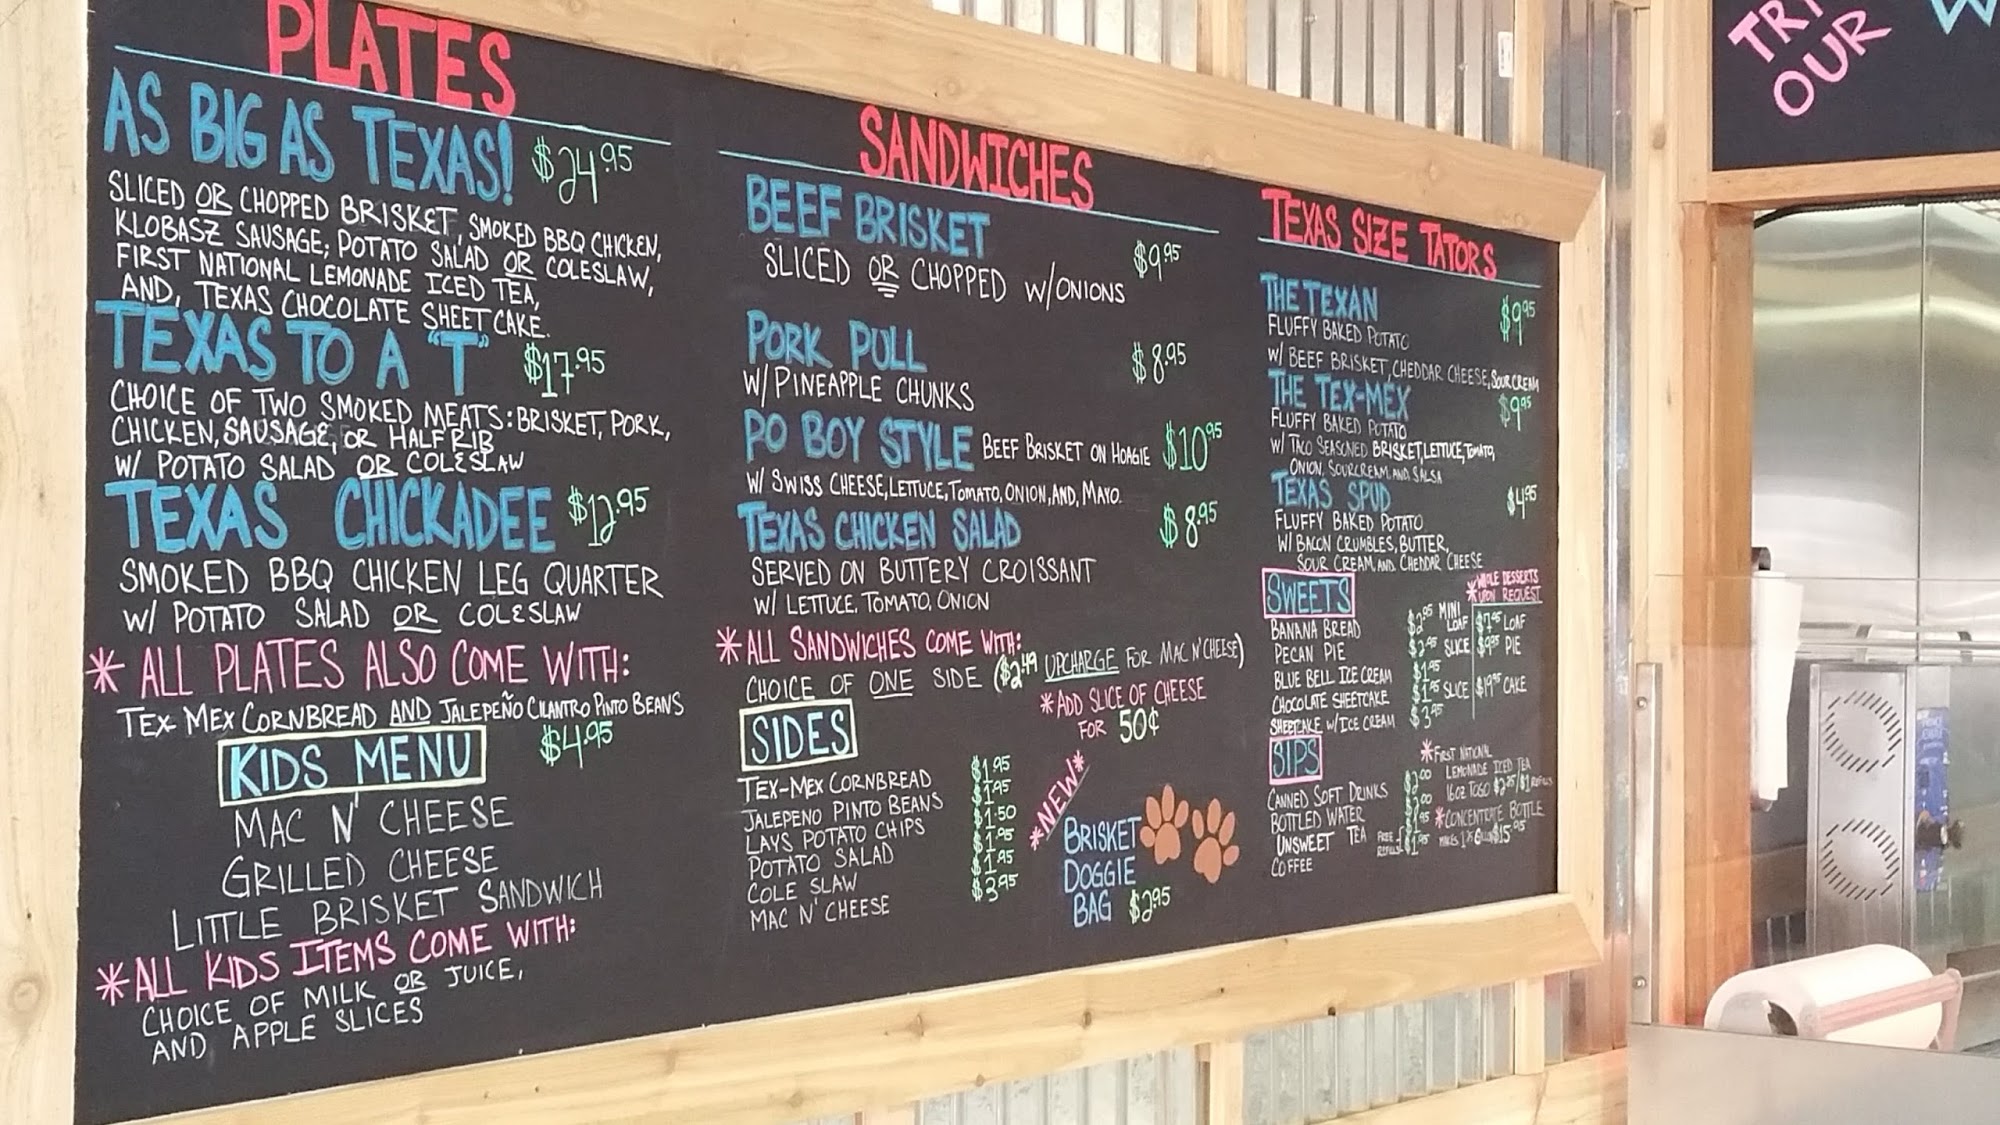 PLATES
AS BIG AS TEXAS! $24.95
SLICED OR CHOPPED BRISKET, SMOKED BBQ CHICKEN,
KLOBASZ SAUSAGE; POTATO SALAD OR COLESLAW,
FIRST NATIONAL LEMONADE ICED TEA,
AND, TEXAS CHOCOLATE SHEET CAKE.
TEXAS TO A "T" $17.95
CHOICE OF TWO SMOKED MEATS: BRISKET, PORK,
CHICKEN, SAUSAGE, OR HALF RIB
W/ POTATO SALAD OR COLESLAW
TEXAS CHICKADEE $12.95
SMOKED BBQ CHICKEN LEG QUARTER
W/ POTATO SALAD OR COLESLAW
*ALL PLATES ALSO COME WITH:
TEX-MEX CORNBREAD AND JALEPEÑO CILANTRO PINTO BEANS
KIDS MENU $4.95
MAC N' CHEESE
GRILLED CHEESE
LITTLE BRISKET SANDWICH
*ALL KIDS ITEMS COME WITH:
CHOICE OF MILK OR JUICE,
AND APPLE SLICES
SANDWICHES
BEEF BRISKET $9.95
SLICED OR CHOPPED W/ONIONS
PORK PULL $8.95
W/PINEAPPLE CHUNKS
PO BOY STYLE BEEF BRISKET ON HOAGIE $10.95
W/ SWISS CHEESE, LETTUCE, TOMATO, ONION, AND, MAYO.
TEXAS CHICKEN SALAD $8.95
SERVED ON BUTTERY CROISSANT
W/ LETTUCE, TOMATO, ONION
*ALL SANDWICHES COME WITH:
CHOICE OF ONE SIDE ($2.49 UPCHARGE FOR MAC N'CHEESE)
*ADD SLICE OF CHEESE
FOR 50¢
SIDES
TEX-MEX CORNBREAD $1.95
JALEPENO PINTO BEANS $1.95
LAYS POTATO CHIPS $1.50
POTATO SALAD $1.95
COLE SLAW $1.95
MAC N' CHEESE $3.95
*NEW*
BRISKET
DOGGIE
BAG $2.95
TEXAS SIZE TATORS
THE TEXAN $9.95
FLUFFY BAKED POTATO
W/ BEEF BRISKET, CHEDDAR CHEESE, SOUR CREAM
THE TEX-MEX $9.95
FLUFFY BAKED POTATO
W/ TACO SEASONED BRISKET, LETTUCE, TOMATO,
ONION, SOURCREAM AND SALSA
TEXAS SPUD $4.95
FLUFFY BAKED POTATO
W/ BACON CRUMBLES, BUTTER,
SOUR CREAM AND CHEDDAR CHEESE
SWEETS
*WHOLE DESSERTS
UPON REQUEST
BANANA BREAD $2.95 MINI LOAF $7.95 LOAF
PECAN PIE $2.95 SLICE $9.95 PIE
BLUE BELL ICE CREAM $1.95
CHOCOLATE SHEETCAKE $1.95 SLICE $19.95 CAKE
SHEETCAKE W/ICE CREAM $3.95
SIPS
CANNED SOFT DRINKS $2.00
BOTTLED WATER $2.00
UNSWEET TEA $1.95
COFFEE $1.95
FREE
REFILLS
*FIRST NATIONAL
LEMONADE ICED TEA
16OZ TOGO $2.75/$1 REFILLS
*CONCENTRATE BOTTLE
$15.95
TRY
OUR